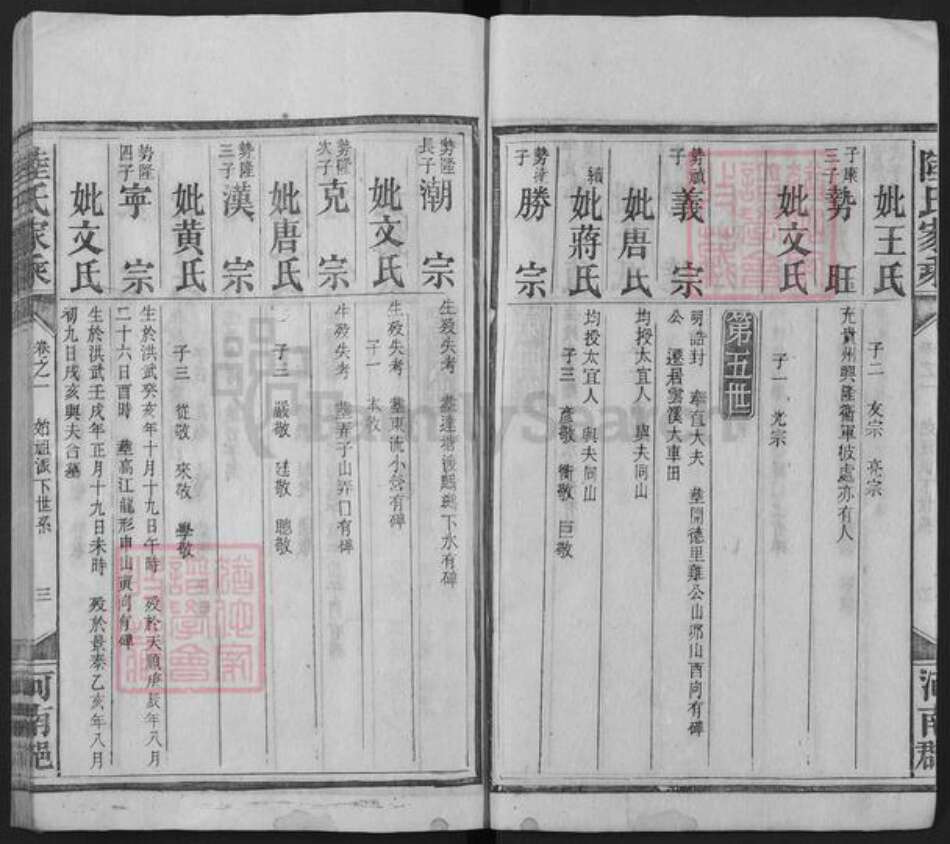 陸氏家乘
河南郡
妣王氏
子二 友宗 亮宗
子康三子
勢旺
充貴州興隆衛軍彼處亦有人
妣文氏
子一 光宗
第五世
勢誠子
義宗
明誥封 奉直大夫 墓開德里雞公山 山酉向有碑
公 遷居雲溪大車田
妣唐氏
均授太宜人 與夫同山
續妣蔣氏
均授太宜人 與夫同山
子三 彥敬 衡敬 巨敬
子
勝宗
勢隆長子
潮宗
生歿失考 墓達塘後 下水有碑
妣文氏
生歿失考 墓東流小 有碑
子一 本敬
勢隆次子
克宗
生歿失考 墓弄子山弄口有碑
妣唐氏
子三 嚴敬 廷敬 聰敬
勢隆三子
漢宗
妣黃氏
子三 從敬 來敬 學敬
勢隆四子
寧宗
生於洪武癸亥年十月十九日午時 歿於天順庚辰年八月
二十六日酉時 墓高江龍形申山寅向有碑
妣文氏
生於洪武壬戌年正月十九日未時 歿於景泰乙亥年八月
初九日戌亥與夫合墓
陸氏家乘
卷之一 始祖派下世系
三
河南郡